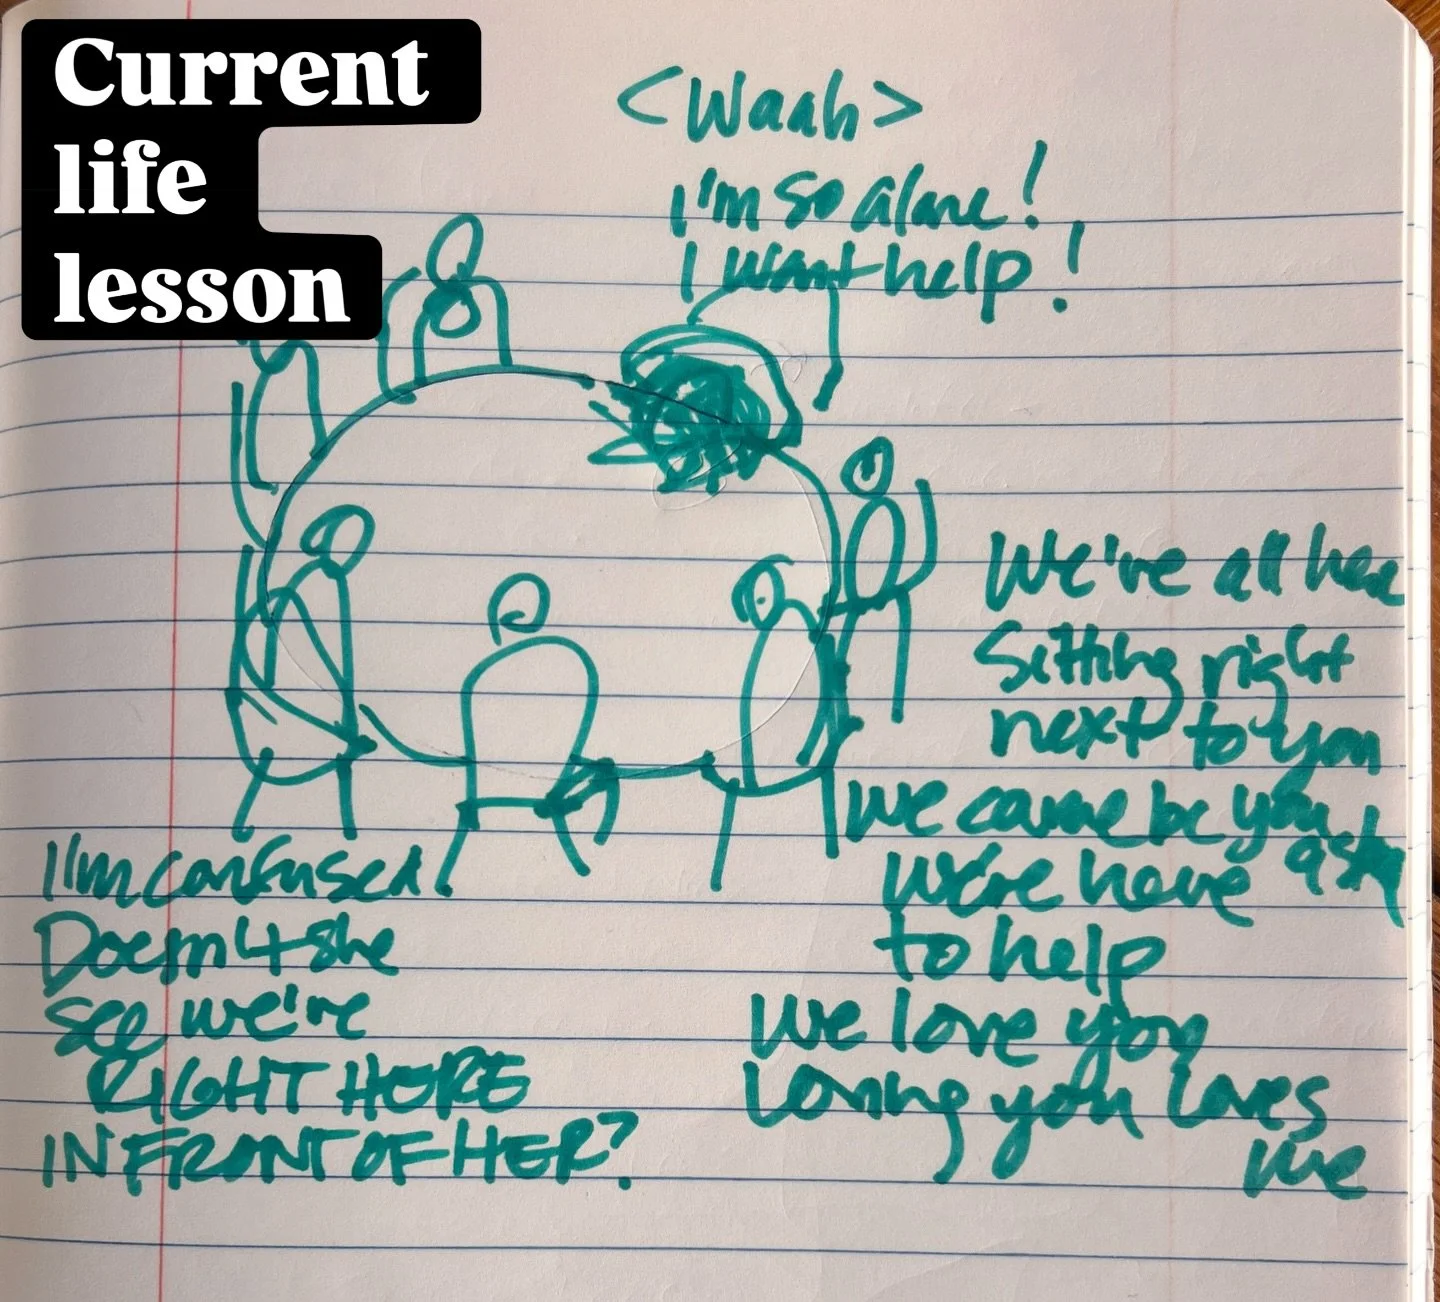 Current
life
lesson
<Waah>
I'm so alone!
I want help!
We're all here
Sitting right
next to you
we came bc you
asked
We're here
to help
We love you
Loving you loves
we
I'm confused.
Doesn't she
see we're
RIGHT HERE
IN FRONT OF HER?